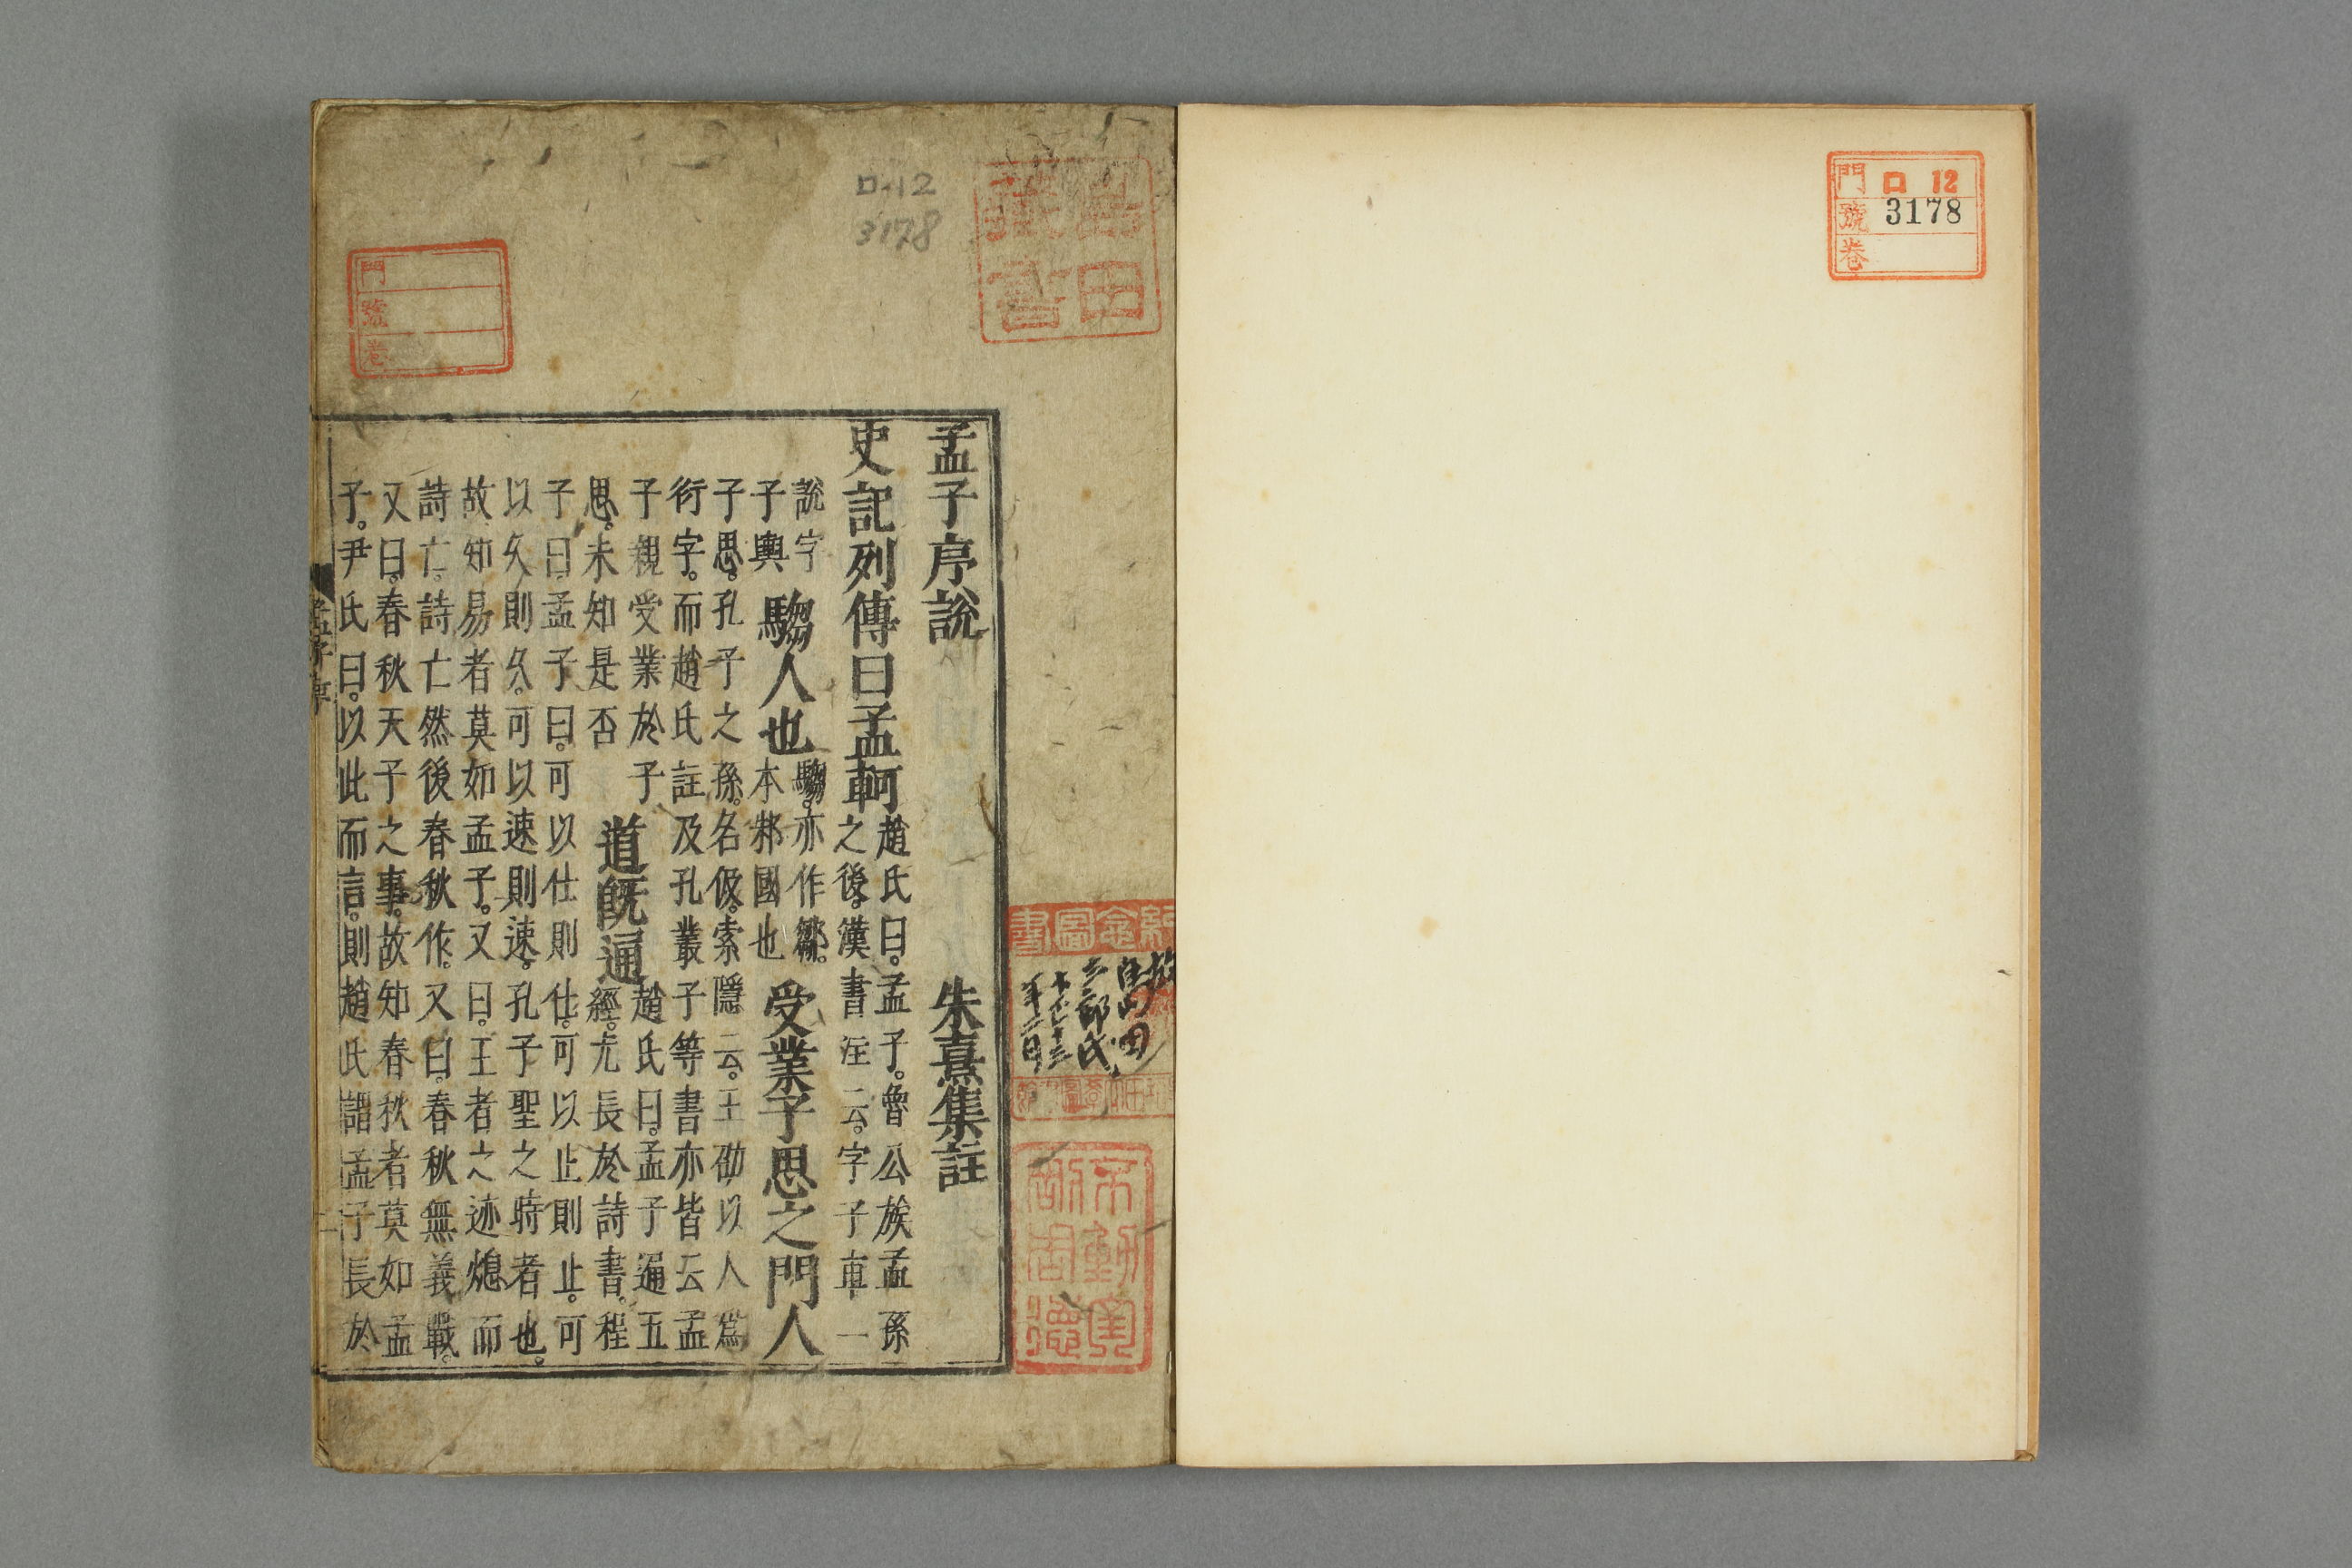 門 ロ 12
號 3178
卷
ロ12
3178
門
號
卷
孟子序說
朱熹集註
史記列傳曰孟軻
趙氏曰。孟子。魯公族孟孫
之後。漢書注云。字子車一
說字
子輿
騶人也
騶。亦作鄒。
本邾國也
受業子思之門人
子思。孔子之孫。名伋。索隱云。王劭以人爲
衍字。而趙氏註及孔叢子等書亦皆云孟
子親受業於子
思。未知是否
道旣通
趙氏曰。孟子通五
經。尤長於詩書。程
子曰。孟子曰。可以仕則仕。可以止則止。可
以久則久。可以速則速。孔子聖之時者也。
故知易者莫如孟子。又曰。王者之迹熄而
詩亡。詩亡然後春秋作。又曰。春秋無義戰。
又曰。春秋天子之事。故知春秋者莫如孟
子。尹氏曰。以此而言。則趙氏謂孟子長於
孟子序